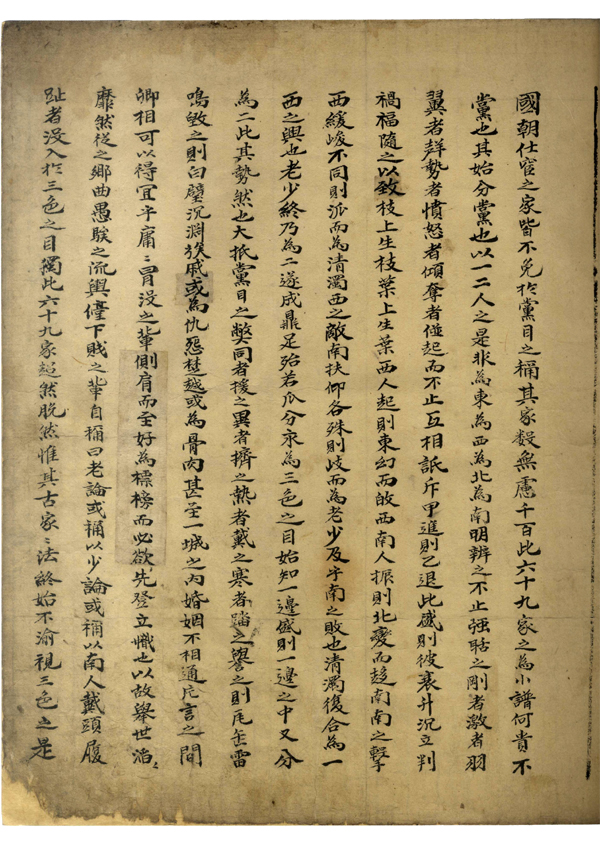 國朝仕宦之家皆不免於黨目之稱其家數無慮千百此六十九家之為小譜何貴不
黨也其始分黨也以一二人之是非為東為西為北為南明辨之不止强聒之剛者激者羽
翼者群勢者憤怒者傾奪者傞起而不止互相詆斥甲進則乙退此盛則彼衰升沉立判
禍福隨之以致枝上生枝葉上生葉西人起則東幻西啟西南人振則北變而趍南南之擊
西緩峻不同則派而為清濁西之敵南扶仰各殊則歧而為老少及乎南之敗也清濁復合為一
西之興也老少終乃為二遂成鼎足殆若瓜分汞為三色之目始知一邊盛則一邊之中又分
為二此其勢然也大抵黨目之弊同者援之異者擠之熱者戴之寒者踏之譽之則瓦缶雷
鳴毀之則白璧沉淵族戚或為仇怨楚越或為骨肉甚至一城之內婚姻不相通片言之間
卿相可以得宜乎庸〻冒沒之輩側肩而至好為標榜而必欲先登立幟也以故舉世滔〻
靡然從之鄉曲愚騃之流輿儓下賤之輩自稱曰老論或稱以少論或稱以南人戴頭腹
趾者沒入於三色之目獨此六十九家超然脫然惟其古家〻法終始不渝視三色之是